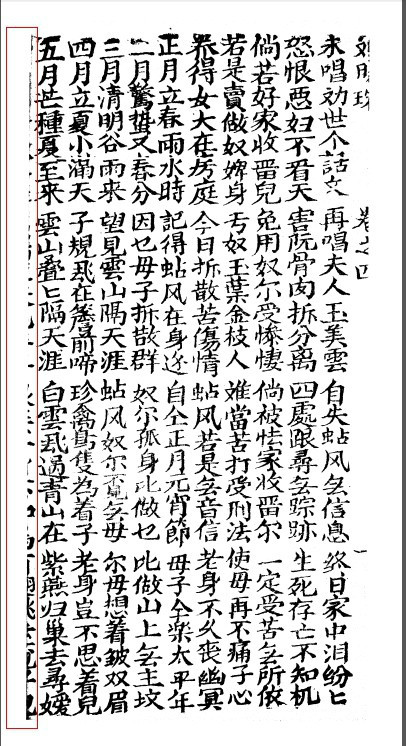 刘明珠 卷之四
未唱劝世个話文 再唱夫人玉美雲 自失蛅风无信息 終日家中泪纷匕
怨恨恶妇不看天 害阮骨肉拆分离 四處跟尋无踪跡 生死存亡不知机
倘若好家收畄兒 免用奴尔受慘悽 倘被恠家收畄尔 一定受苦无所依
若是賣做奴婢身 亏奴玉葉金枝人 难當苦打受刑法 使母再不痛子心
养得女大在房庭 今日拆散苦傷情 蛅风若是无音信 老身不久丧幽冥
正月立春雨水時 記得蛅风在身边 自仝正月元宵節 母子仝樂太平年
二月驚蛰又春分 因乜母子拆散群 奴尔孤身比做乜 比做山上无主坟
三月清明谷雨來 望見雲山隔天涯 蛅风奴尔覓无母 尔母想着皱双眉
四月立夏小滿天 子規飛在簷前啼 珍禽隻為着子 老身豈不思着兒
五月芒種夏至來 雲山疊匕隔天涯 白雲飛過青山在 紫燕归巢去尋